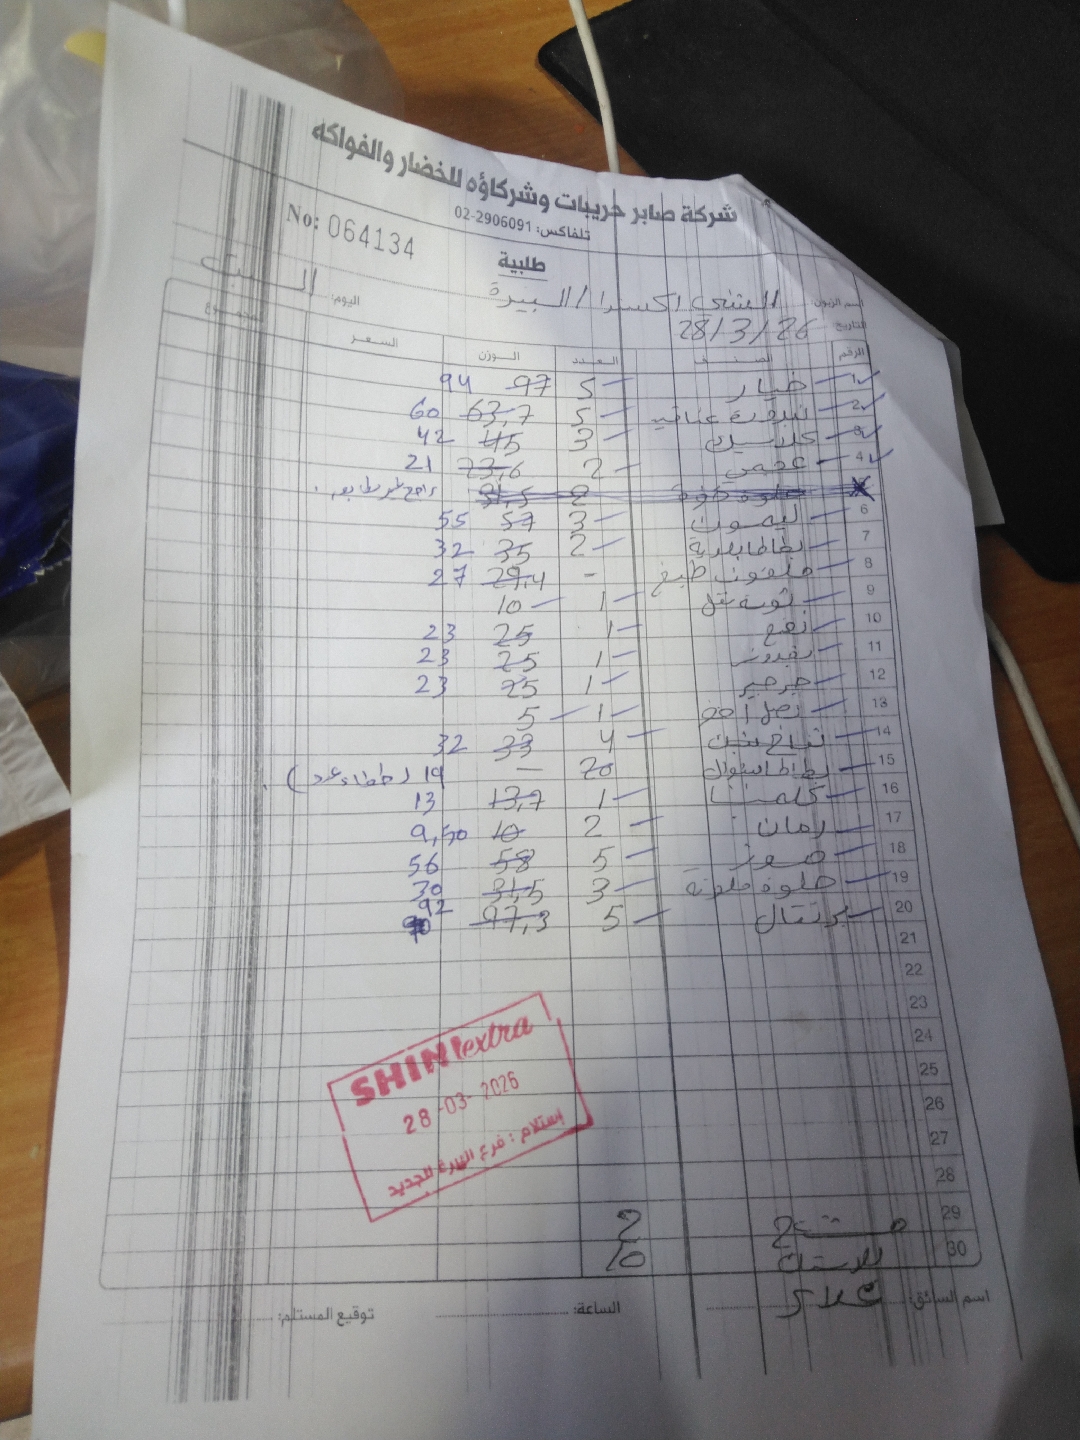 شركة صابر حريبات وشركاؤه للخضار والفواكه
تلفاكس: 02-2906091
No: 064134
طلبية
اسم الزبون: الشني اكسترا / البيرة اليوم: السبت
التاريخ: 28/3/26
الرقم الصنف العدد الوزن السعر المجموع
1 خيار 5 97 94
2 5 63,7 60
3 3 45 42
4 عجمي 2 23,6 21
2 31,5
6 ليمون 3 57 55
7 بطاطا بلدية 2 35 32
8 ملفوف طبخ - 29,4 27
9 1 10
10 نعنع 1 25 23
11 بقدونس 1 25 23
12 جرجير 1 25 23
13 بصل أحمر 1 5
14 4 33 32
15 20 — 19
16 كلمنتينا 1 13,7 13
17 رمان 2 10 9,50
18 موز 5 58 56
19 حلوة ملونة 3 31,5 30
20 برتقال 5 97,3 92
21
22
23
24
25
26
27
28
29 2
30 10
SHINI extra
28-03-2026
إستلام: فرع البيرة الجديد
اسم السائق: علاء الساعة: توقيع المستلم: